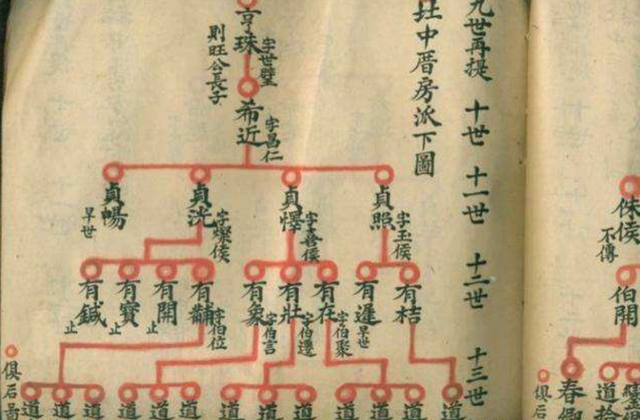 九世再提 十世 十一世 十二世 十三世
中厝房派下圖
亨珠
字世璧
則旺公長子
希近
字昌仁
貞照
字玉侯
貞懌
字喜侯
貞洸
字燦侯
貞暢
早世
有桔
有逢
早世
有在
字伯聚
有壯
字伯遷
有象
字伯言
有黼
字伯位
有開
止
有寶
止
有鋮
止
道 道 道 道 道 道 道 道 道 道 道 道
俱后
侏侯
不傳
伯開
春
道
俱